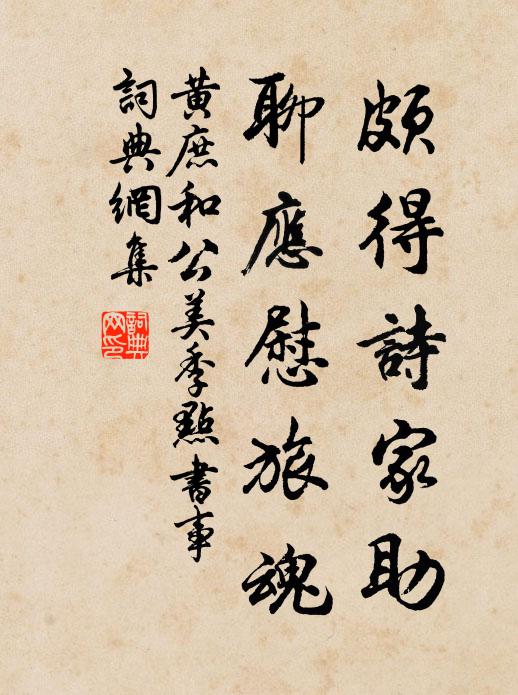 頗得詩家助
聊應慰旅魂
黃庶和公美季點書事
詞典網集
詞典網印